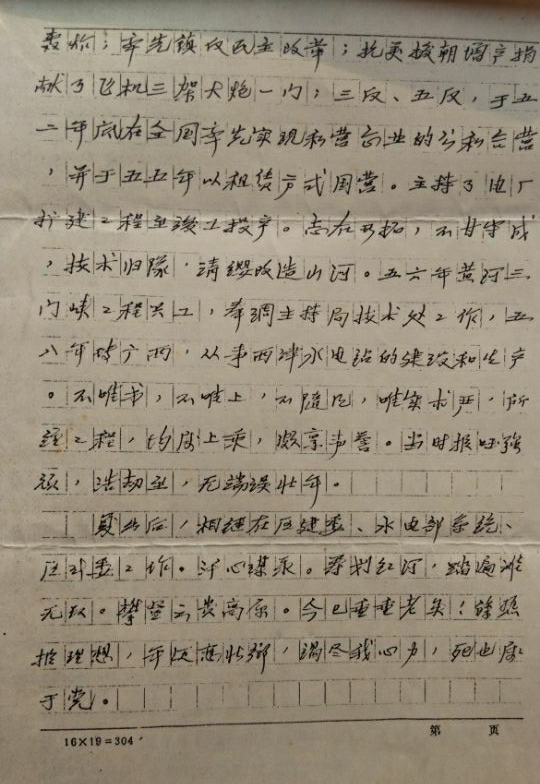 轰炸；率先镇反民主改革；抗美援朝增产捐
献了飞机三架大炮一门；三反、五反，于五
二年底在全国率先实现私营企业的公私合营
，并于五五年以租赁方式国营。主持了电厂
扩建工程至竣工投产。志在开拓，不甘守成
，技术归队，请缨改造山河。五六年黄河三
门峡工程兴工，奉调主持局技术处工作，五
八年转广西，从事西津水电站的建设和生产
。不唯书，不唯上，不随风，唯实求严，所
经工程，均属上乘，颇享声誉。当时
，浩劫至，无端误壮年。
复出后，相继在区建委、水电部系统、
区计委工作。筹划红河，踏遍
。攀登云贵高原。今已垂垂老矣！
理想，年处，竭尽我心力，死也属
于党。
16×19=304
第 页